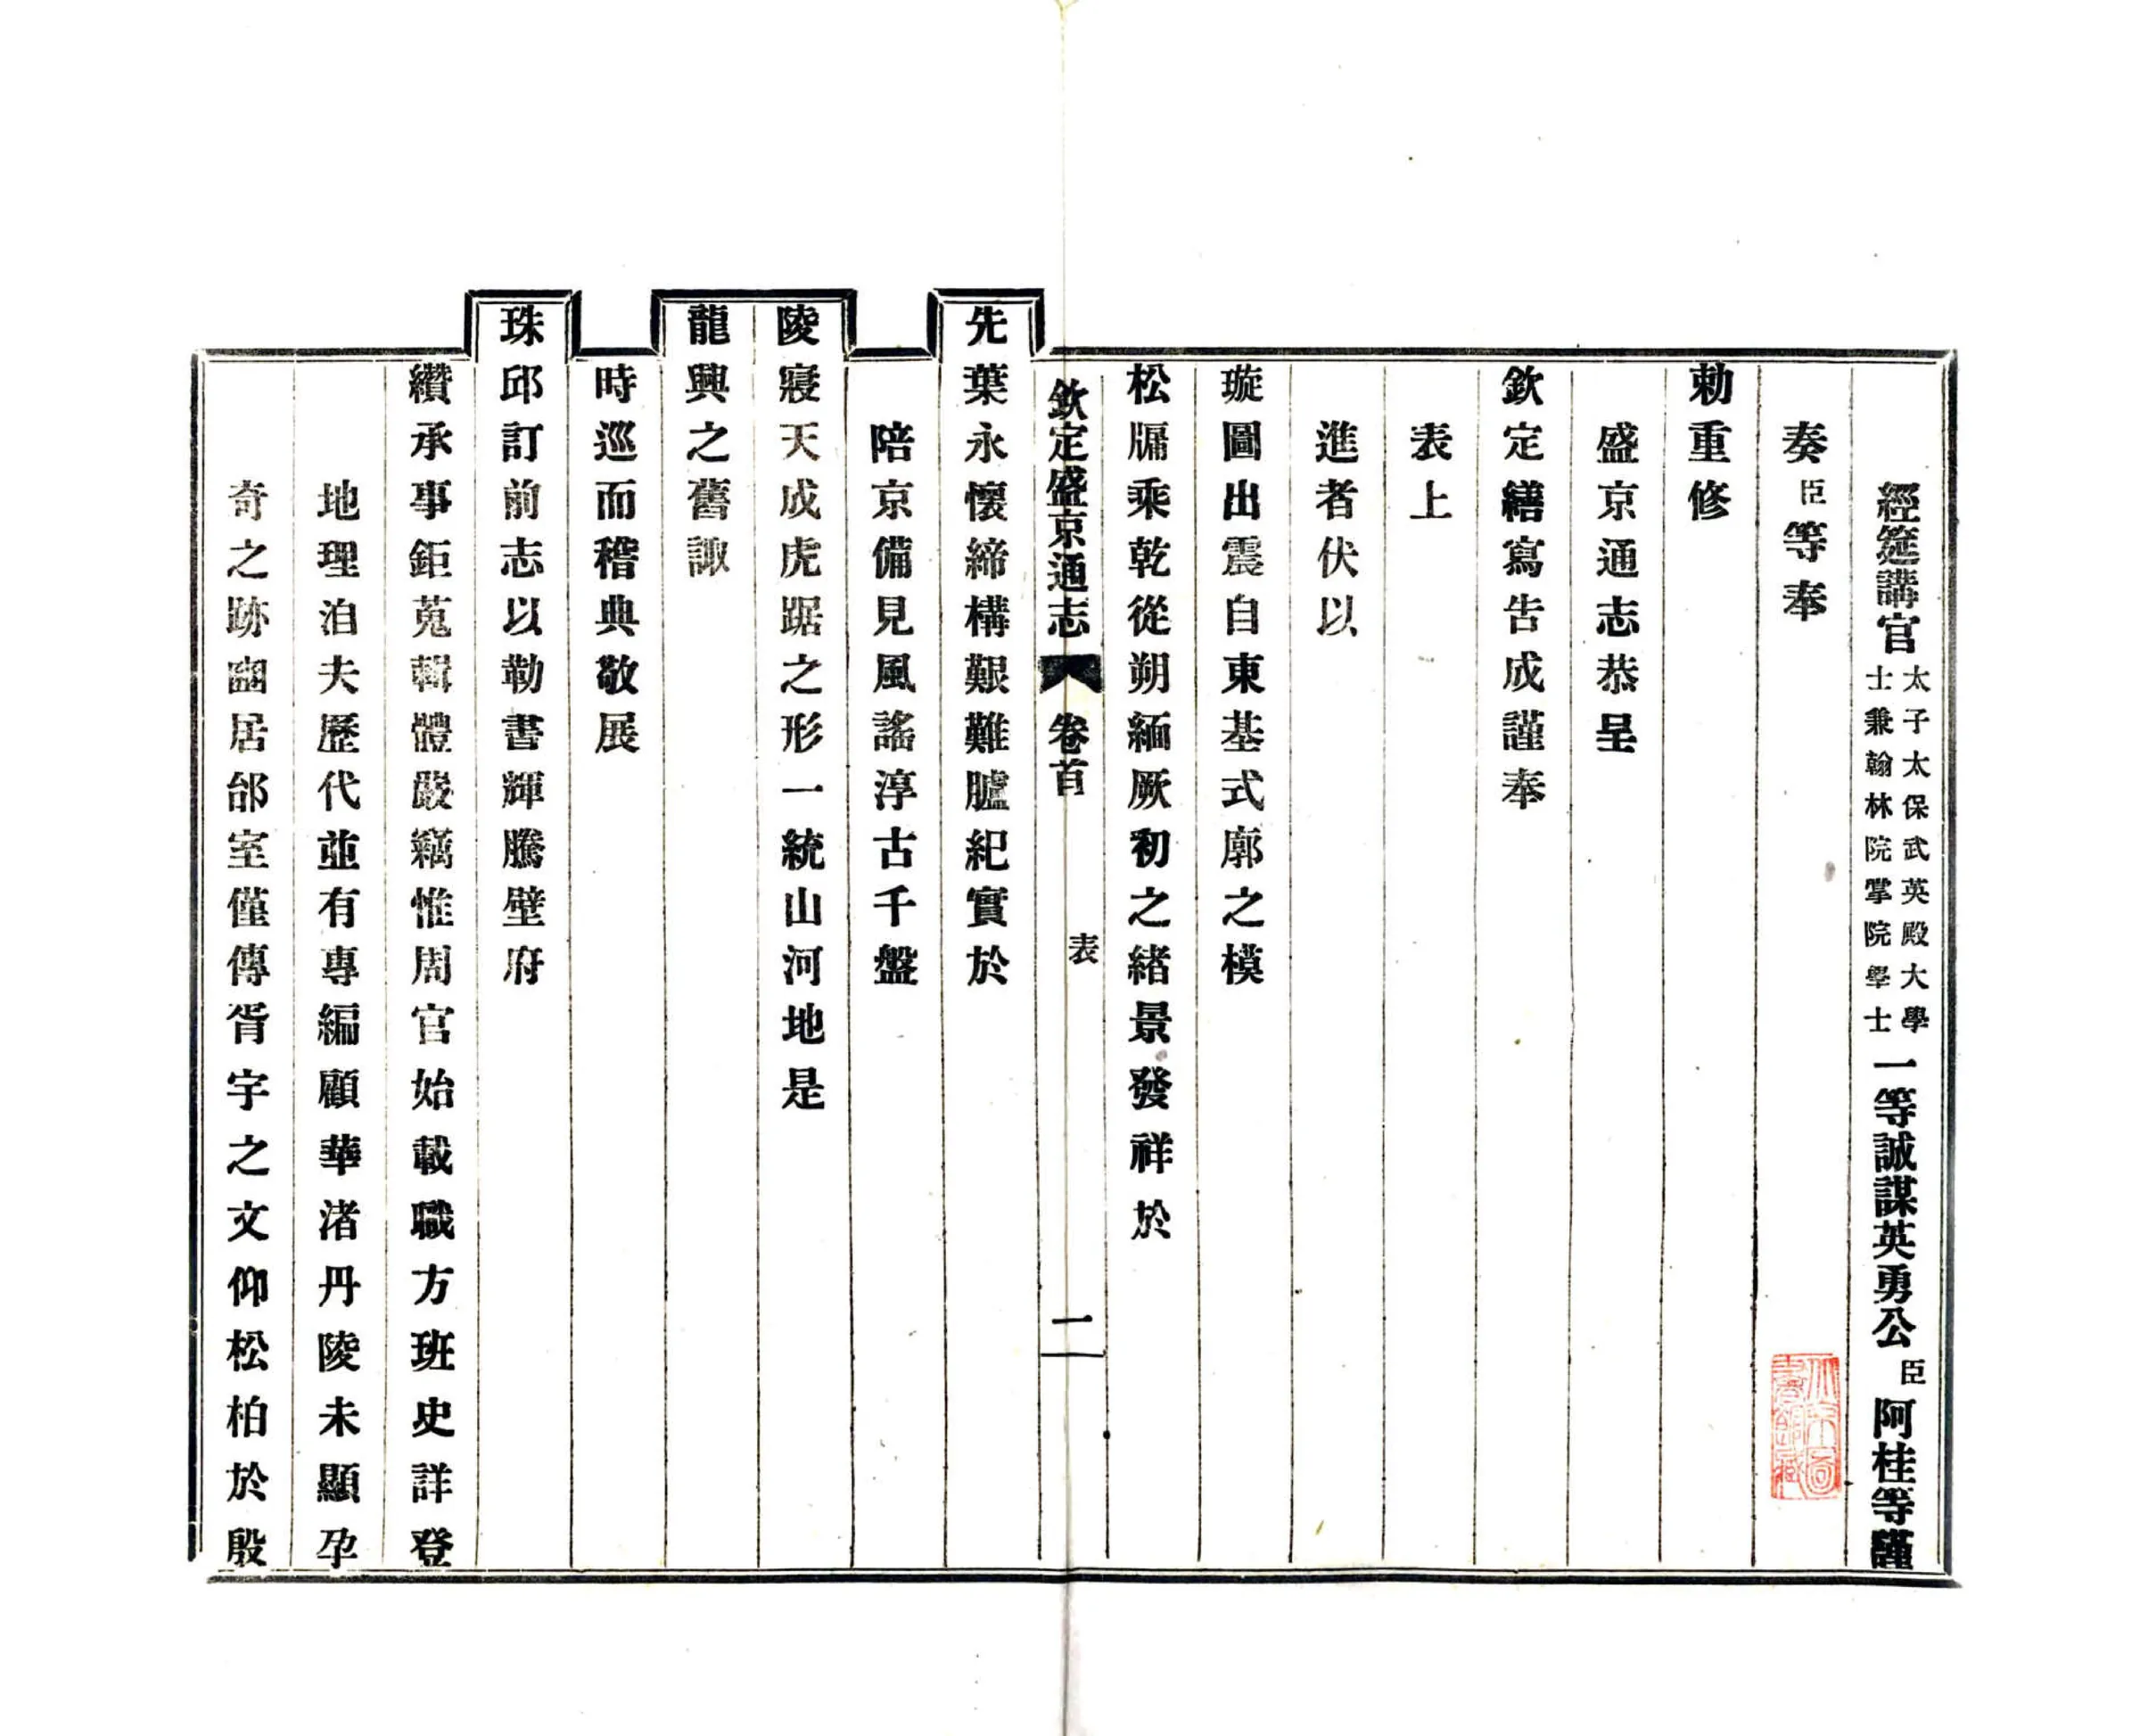 經筵講官太子太保武英殿大學士兼翰林院掌院學士一等誠謀英勇公臣阿桂等謹
奏臣等奉
勅重修
盛京通志恭呈
欽定繕寫告成謹奉
表上
進者伏以
璇圖出震自東基式廓之模
松牖乘乾從朔緬厥初之緒景發祥於
欽定盛京通志 卷首 表 一
先葉永懷締構艱難臚紀實於
陪京備見風謠淳古千盤
陵寢天成虎踞之形一統山河地是
龍興之舊諏
時巡而稽典敬展
珠邱訂前志以勒書輝騰壁府
纘承事鉅蒐輯體嚴竊惟周官始載職方班史詳登
地理洎夫歷代並有專編顧華渚丹陵未顯孕
奇之跡豳居邰室僅傳胥宇之文仰松柏於殷